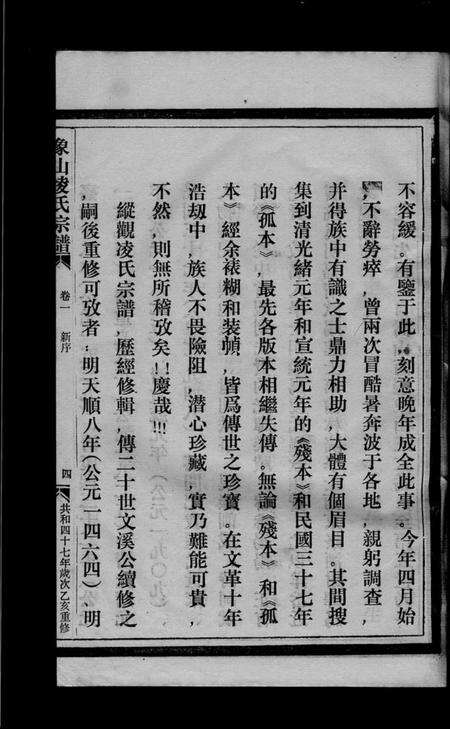 不容緩。有鑒于此，刻意晚年成全此事。今年四月始
，不辭勞瘁，曾兩次冒酷暑奔波于各地，親躬調查，
并得族中有識之士鼎力相助，大體有個眉目。其間搜
集到清光緒元年和宣統元年的《殘本》和民國三十七年
的《孤本》，最先各版本相繼失傳。無論《殘本》和《孤
本》經余裱糊和裝幀，皆爲傳世之珍寶。在文革十年
浩劫中，族人不畏險阻，潛心珍藏，實乃難能可貴，
不然，則無所稽攷矣！！慶哉！！！
縱觀凌氏宗譜，歷經修輯，傳二十世文溪公續修之
，嗣後重修可攷者：明天順八年（公元一四六四）、明
象山凌氏宗譜
卷一 新序
四
共和四十七年歲次乙亥重修